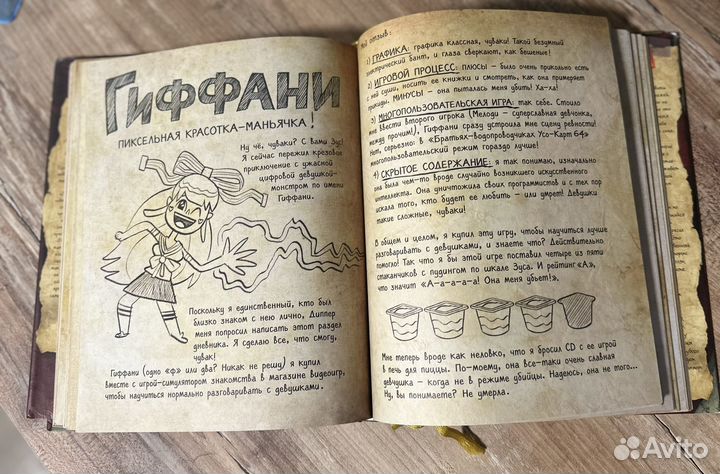 ГИФФАНИ
ПИКСЕЛЬНАЯ КРАСОТКА-МАНЬЯЧКА!
Ну чё, чуваки? С вами Зус!
Я сейчас пережил крезовое
приключение с ужасной
цифровой девушкой-
монстром по имени
Гиффани.
Поскольку я единственный, кто был
близко знаком с нею лично, Диппер
меня попросил написать этот раздел
дневника. Я сделаю все, что смогу,
чувак!
Гиффани (одно «ф» или два? Никак не решу) я купил
вместе с игрой-симулятором знакомства в магазине видеоигр,
чтобы научиться нормально разговаривать с девушками.
Мой отзыв:
1) ГРАФИКА: графика классная, чуваки! Такой безумный
электрический бант, и глаза сверкают, как бешеные!
2) ИГРОВОЙ ПРОЦЕСС: ПЛЮСЫ – было очень прикольно есть
с ней суши, носить ее книжки и смотреть, как она примеряет
прикиды. МИНУСЫ – она пыталась меня убить! Ха-ла!
3) МНОГОПОЛЬЗОВАТЕЛЬСКАЯ ИГРА: так себе. Стоило
мне ввести второго игрока (Мелоди – суперславная девчонка,
между прочим!), Гиффани сразу устроила мне сцену ревности!
Нет, серьезно: в «Братьях-водопроводчиках Усо-Карт 64»
многопользовательский режим гораздо лучше!
4) СКРЫТОЕ СОДЕРЖАНИЕ: я так понимаю, изначально
она была чем-то вроде случайно возникшего искусственного
интеллекта. Она уничтожила своих программистов и с тех пор
искала того, кто будет ее любить – или умрет! Девушки
такие сложные, чуваки!
В общем и целом, я купил эту игру, чтобы научиться лучше
разговаривать с девушками, и знаете что? Действительно
помогло! Так что я бы этой игре поставил четыре из пяти
стаканчиков с пудингом по шкале Зуса. И рейтинг «А»,
что значит «А-а-а-а-а! Она меня убьет!».
Мне теперь вроде как неловко, что я бросил CD с ее игрой
в печь для пиццы. По-моему, она все-таки очень славная
девчушка – когда не в режиме убийцы. Надеюсь, она не того...
Ну, вы понимаете? Не умерла.
Avito